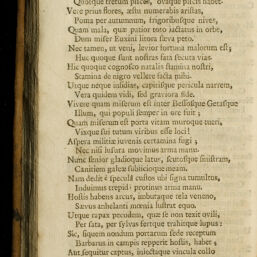 Quotque fretum pisces, ovaque piscis habet-
Vere prius flores, æstu numerabis aristas,
Poma per autumnum, frigoribusque nives,
Quam mala, quæ patior toto jactatus in orbe,
Dum miser Euxini litora sæva peto.
Nec tamen, ut veni, levior fortuna malorum est;
Huc quoque sunt nostras fata secuta vias.
Hic quoque cognosco natalis stamina nostri,
Stamina de nigro vellere facta mihi.
Utque neque insidias, capitisque pericula narrem,
Vera quidem vidi, sed graviora fide.
Vivere quam miserum est inter Bessosque Getasque
Illum, qui populi semper in ore fuit;
Quam miserum est porta vitam muroque tueri,
Vixque sui tutum viribus esse loci!
Aspera militiæ juvenis certamina fugi;
Nec nisi lusura movimus arma manu.
Nunc senior gladioque latus, scutoque sinistram,
Canitiem galeæ subjicioque meam.
Nam dedit è specula custos ubi signa tumultus,
Induimus trepida protinus arma manu.
Hostis habens arcus, imbutaque tela veneno,
Sævus anhelanti mœnia lustrat equo.
Utque rapax pecudem, quæ se non texit ovili,
Per sata, per sylvas fertque trahitque lupus:
Sic, siquem nondum portarum sede receptum
Barbarus in campis repperit hostis, habet;
Aut sequitur captus, injectaque vincula collo